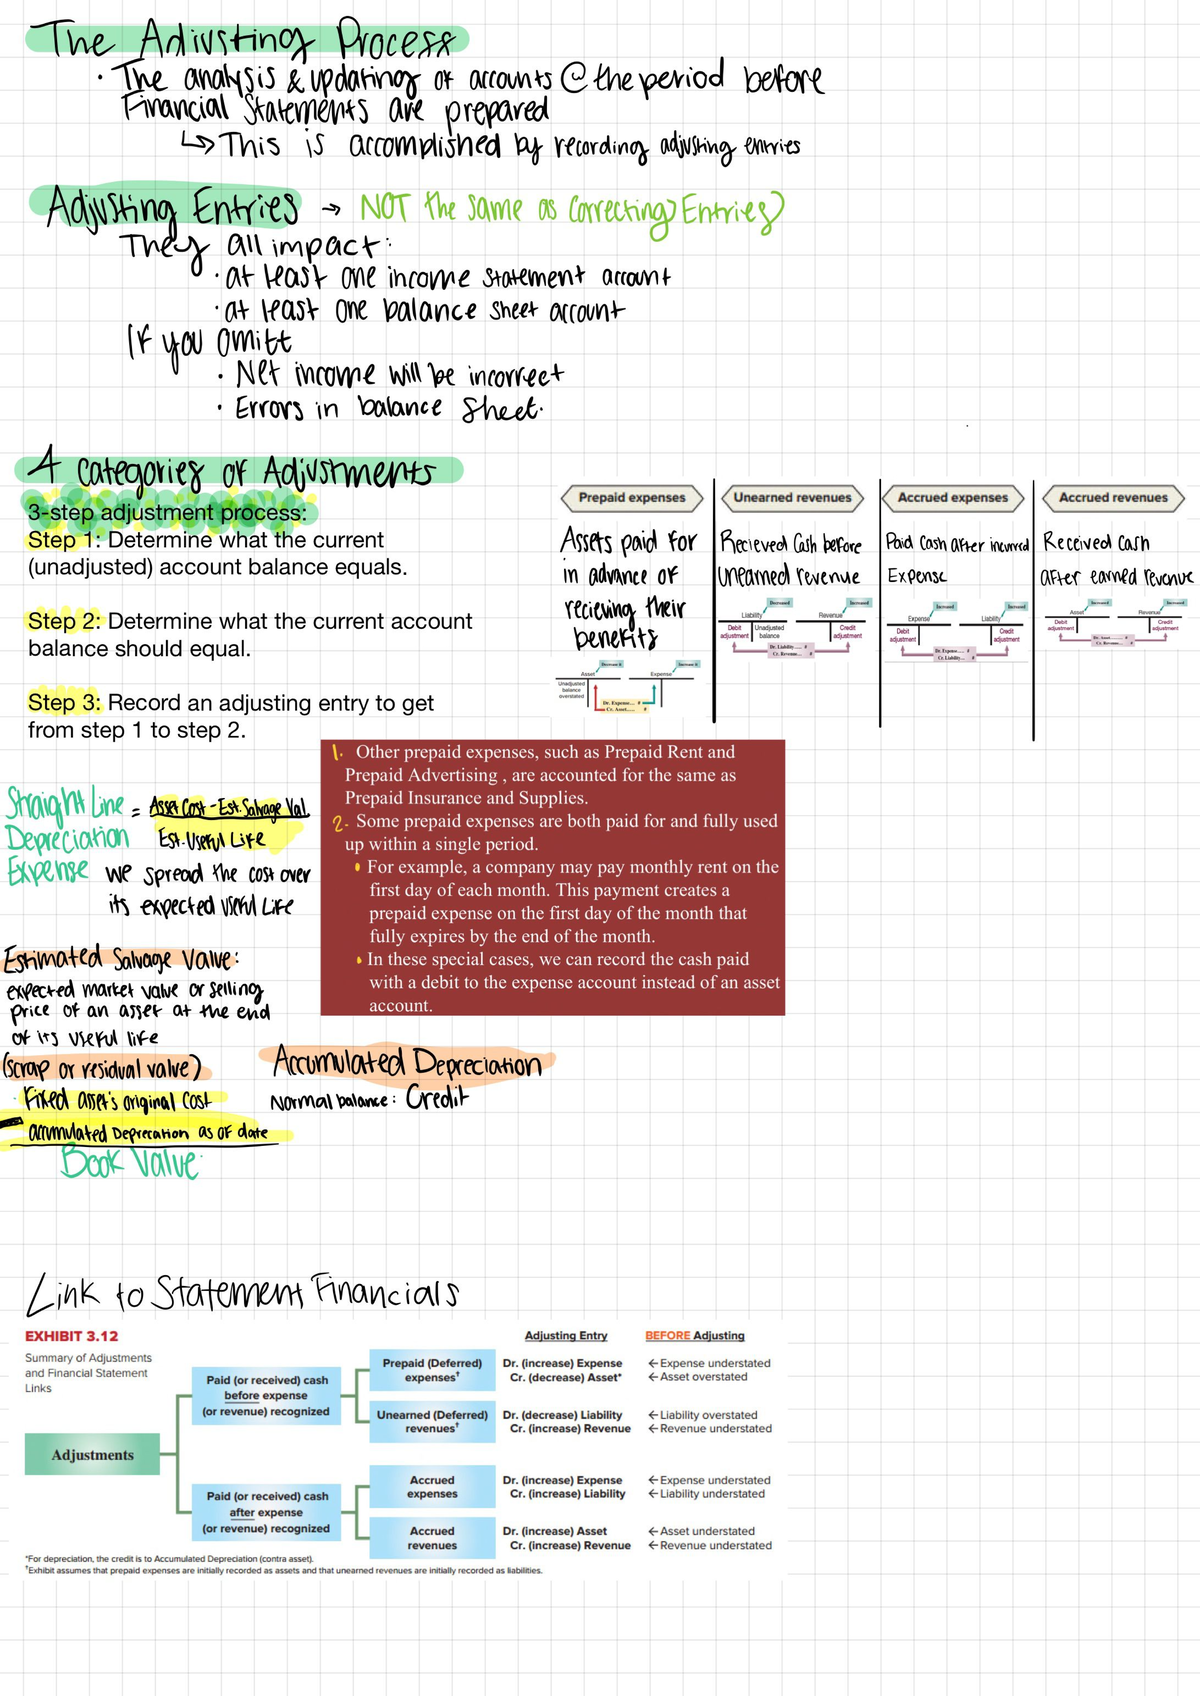 The Adjusting Process
• The analysis & updating of accounts @ the period before
Financial Statements are prepared
↳ This is accomplished by recording adjusting entries
Adjusting Entries → NOT the same as Correcting Entries
They all impact:
• at least one income statement account
• at least one balance sheet account
If you omitt
• Net income will be incorrect
• Errors in balance sheet.
4 Categories of Adjustments
3-step adjustment process:
Step 1: Determine what the current
(unadjusted) account balance equals.
Step 2: Determine what the current account
balance should equal.
Step 3: Record an adjusting entry to get
from step 1 to step 2.
Prepaid expenses
Assets paid for
in advance of
recieving their
benefits
Decrease it
Increase it
Asset
Expense
Unadjusted
balance
overstated
Dr. Expense.... #
Cr. Asset..... #
Unearned revenues
Recieved Cash before
Unearned revenue
Decreased
Increased
Liability
Revenue
Debit
adjustment
Unadjusted
balance
Credit
adjustment
Dr. Liability..... #
Cr. Revenue... #
Accrued expenses
Paid Cash After incurred
Expense
Increased
Increased
Expense
Liability
Debit
adjustment
Credit
adjustment
Dr. Expense..... #
Cr. Liability... #
Accrued revenues
Received Cash
After earned revenue
Increased
Increased
Asset
Revenue
Debit
adjustment
Credit
adjustment
Dr. Asset........... #
Cr. Revenue.... #
1. Other prepaid expenses, such as Prepaid Rent and
Prepaid Advertising , are accounted for the same as
Prepaid Insurance and Supplies.
2. Some prepaid expenses are both paid for and fully used
up within a single period.
• For example, a company may pay monthly rent on the
first day of each month. This payment creates a
prepaid expense on the first day of the month that
fully expires by the end of the month.
• In these special cases, we can record the cash paid
with a debit to the expense account instead of an asset
account.
Straight Line = Asset Cost - Est. Salvage Val.
Depreciation Est. Useful Life
Expense We spread the cost over
its expected useful life
Estimated Salvage Value:
expected market value or selling
price of an asset at the end
of its useful life
(scrap or residual value)
• Fixed asset's original cost
- accumulated Deprecation as of date
Book Value
Accumulated Depreciation
Normal balance: Credit
Link to Statement Financials
EXHIBIT 3.12
Summary of Adjustments
and Financial Statement
Links
Adjustments
Paid (or received) cash
before expense
(or revenue) recognized
Paid (or received) cash
after expense
(or revenue) recognized
Adjusting Entry
BEFORE Adjusting
Prepaid (Deferred)
expenses†
Dr. (increase) Expense
Cr. (decrease) Asset*
← Expense understated
← Asset overstated
Unearned (Deferred)
revenues†
Dr. (decrease) Liability
Cr. (increase) Revenue
← Liability overstated
← Revenue understated
Accrued
expenses
Dr. (increase) Expense
Cr. (increase) Liability
← Expense understated
← Liability understated
Accrued
revenues
Dr. (increase) Asset
Cr. (increase) Revenue
← Asset understated
← Revenue understated
*For depreciation, the credit is to Accumulated Depreciation (contra asset).
†Exhibit assumes that prepaid expenses are initially recorded as assets and that unearned revenues are initially recorded as liabilities.